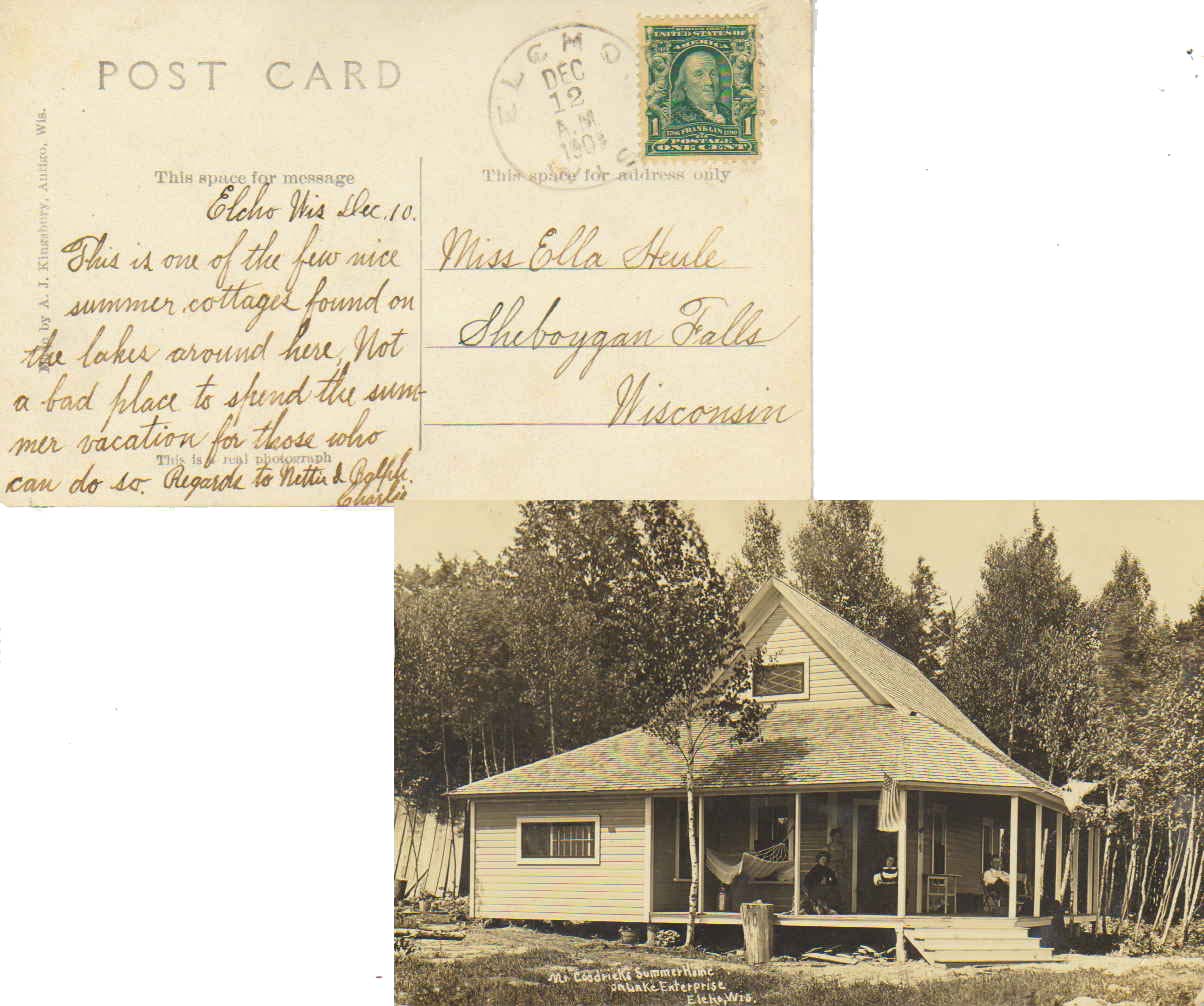 POST CARD
ELCHO
DEC
12
A.M.
UNITED STATES OF
AMERICA
1 FRANKLIN 1
POSTAGE
ONE CENT
by A. J. Kingsbury, Antigo, Wis.
This space for message
This space for address only
Elcho Wis Dec. 10.
This is one of the few nice
summer cottages found on
the lakes around here, Not
a bad place to spend the sum-
mer vacation for those who
This is a real photograph
can do so. Regards to Nettie & Ralph.
Charlie
Miss Ella Heule
Sheboygan Falls
Wisconsin
Mr Goodrick's Summer Home
on Lake Enterprise
Elcho, Wis.